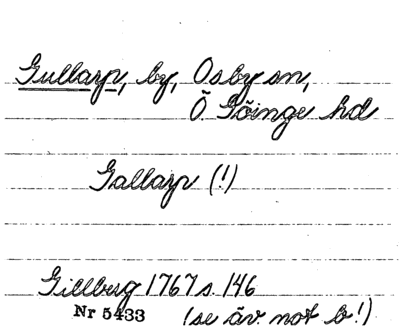 Gullarp, by, Osby sn,
Ö. Göinge hd
Gallarp (!)
Gillberg 1767 s 146
Nr 5433 (se äv not b!)